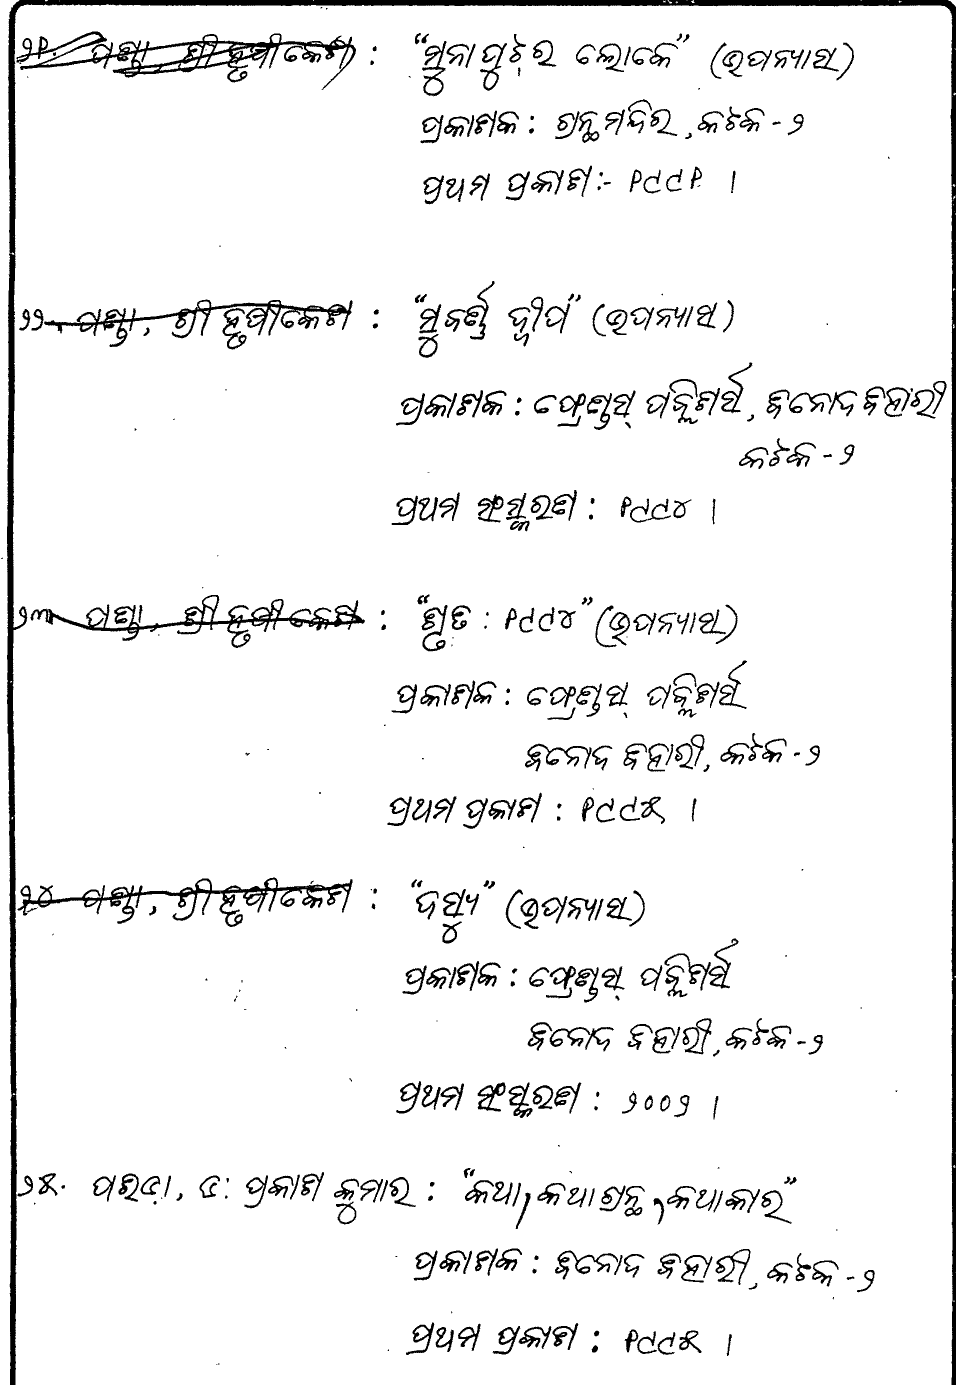 ୨୧. ପଣ୍ଡା, ଶ୍ରୀ ହୃଷୀକେଶ : “ସୁନାପୁଟର ଲୋକେ” (ଉପନ୍ୟାସ)
ପ୍ରକାଶକ : ଗ୍ରନ୍ଥମନ୍ଦିର, କଟକ - ୨
ପ୍ରଥମ ପ୍ରକାଶ :- ୧୯୯୧ ।
୨୨. ପଣ୍ଡା, ଶ୍ରୀ ହୃଷୀକେଶ : “ସୁବର୍ଣ୍ଣ ଦ୍ୱୀପ” (ଉପନ୍ୟାସ)
ପ୍ରକାଶକ : ଫ୍ରେଣ୍ଡସ୍ ପବ୍ଲିଶର୍ସ, ବିନୋଦ ବିହାରୀ
କଟକ - ୨
ପ୍ରଥମ ସଂସ୍କରଣ : ୧୯୯୪ ।
୨୩. ପଣ୍ଡା, ଶ୍ରୀ ହୃଷୀକେଶ : “ଶୂନ୍ୟ : ୧୯୯୪” (ଉପନ୍ୟାସ)
ପ୍ରକାଶକ : ଫ୍ରେଣ୍ଡସ୍ ପବ୍ଲିଶର୍ସ
ବିନୋଦ ବିହାରୀ, କଟକ - ୨
ପ୍ରଥମ ପ୍ରକାଶ : ୧୯୯୫ ।
୨୪ ପଣ୍ଡା, ଶ୍ରୀ ହୃଷୀକେଶ : “ଦସ୍ୟୁ” (ଉପନ୍ୟାସ)
ପ୍ରକାଶକ : ଫ୍ରେଣ୍ଡସ୍ ପବ୍ଲିଶର୍ସ
ବିନୋଦ ବିହାରୀ, କଟକ - ୨
ପ୍ରଥମ ସଂସ୍କରଣ : ୨୦୦୨ ।
୨୫. ପରିଡ଼ା, ଡ଼ଃ ପ୍ରକାଶ କୁମାର : “କଥା, କଥାଗ୍ରନ୍ଥ, କଥାକାର”
ପ୍ରକାଶକ : ବିନୋଦ ବିହାରୀ, କଟକ - ୨
ପ୍ରଥମ ପ୍ରକାଶ : ୧୯୯୫ ।